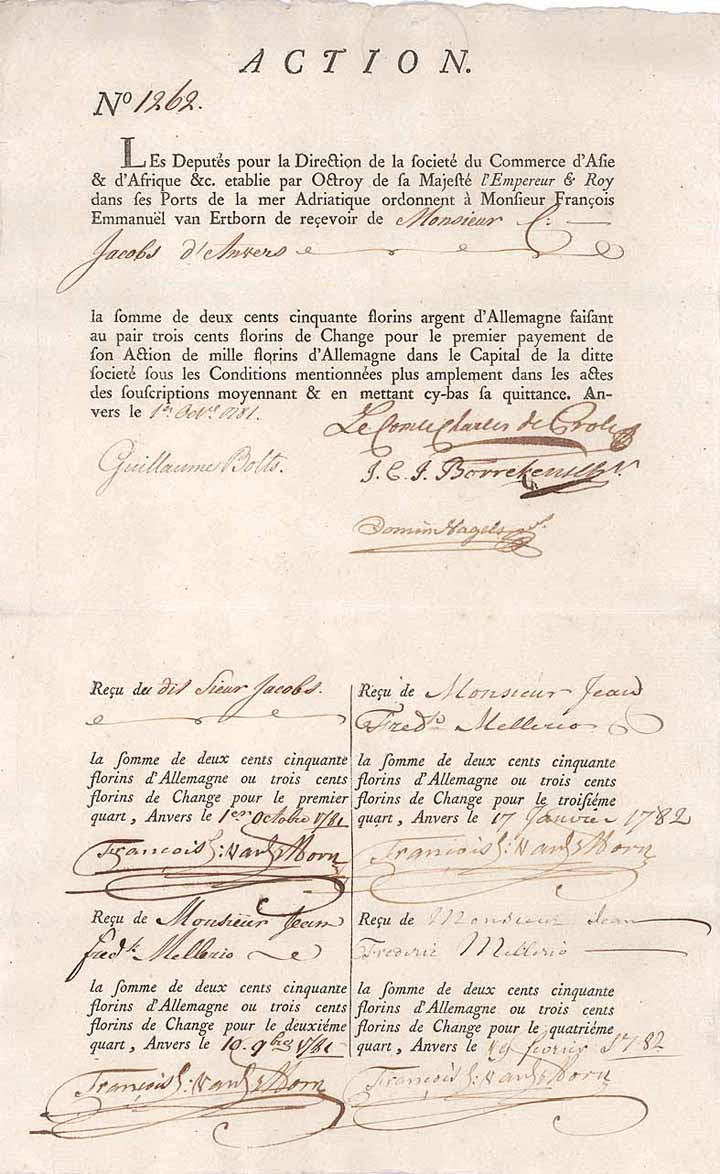 ACTION.
No 1262.
LEs Deputés pour la Direction de la societé du Commerce d'Asie
& d'Afrique &c. etablie par Octroy de sa Majesté l'Empereur & Roy
dans ses Ports de la mer Adriatique ordonnent à Monsieur François
Emmanuël van Ertborn de reçevoir de Monsieur C:
Jacobs d'Anvers
la somme de deux cents cinquante florins argent d'Allemagne faisant
au pair trois cents florins de Change pour le premier payement de
son Action de mille florins d'Allemagne dans le Capital de la ditte
societé sous les Conditions mentionnées plus amplement dans les actes
des souscriptions moyennant & en mettant cy-bas sa quittance. An-
vers le 1er Octre 1781.
Le Comte Charles de
Guillaume Bolts.
J. C. J. Borrekens
Domin Nagels
Reçu du dit Sieur Jacobs.
la somme de deux cents cinquante
florins d'Allemagne ou trois cents
florins de Change pour le premier
quart, Anvers le 1er Octobre 1781
François E: van Ertborn
Reçu de Monsieur Jean
Fredk Mellerio
la somme de deux cents cinquante
florins d'Allemagne ou trois cents
florins de Change pour le deuxiéme
quart, Anvers le 10. 9bre 1781
François E: van Ertborn
Reçu de Monsieur Jean
Fredk Mellerio
la somme de deux cents cinquante
florins d'Allemagne ou trois cents
florins de Change pour le troisiéme
quart, Anvers le 17 Janvier 1782
François E: van Ertborn
Reçu de Monsieur Jean
Frederic Mellerio
la somme de deux cents cinquante
florins d'Allemagne ou trois cents
florins de Change pour le quatriéme
quart, Anvers le 19 fevrier 1782
François E: van Ertborn